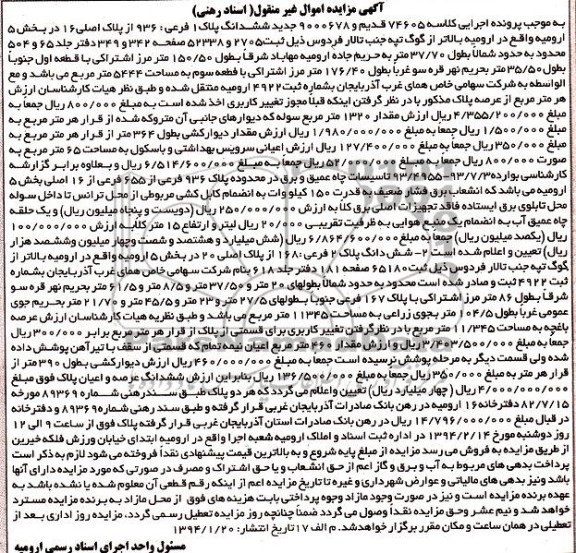 آگهی مزایده اموال غیر منقول( اسناد رهنی)
به موجب پرونده اجرایی کلاسه ۷۴۶۰۵ قدیم و ۹۰۰۰۶۷۸ جدید ششدانگ پلاک۱ فرعی : ۹۳۶ از پلاک اصلی۱۶ در بخش ۵
ارومیه واقع در ارومیه بالاتر از گوگ تپه جنب تالار فردوس ذیل ثبت۲۷۰۵ و ۵۲۳۳۸ صفحه ۳۴۲ و ۳۴۹ دفتر جلد ۶۵ و ۵۰۴
محدود به حدود شمالاً بطول ۳۷/۷۰ متر به حریم جاده ارومیه مهاباد شرقاً بطول ۱۵۰/۵۰ متر مرز اشتراکی با قطعه اول جنوباً
بطول ۳۵/۵۰ متر بحریم نهر قره سو غرباً بطول ۱۷۶/۴۰ متر مرز اشتراکی با قطعه سوم به مساحت ۵۴۴۴ متر مربع می باشد و مع
الواسطه به شرکت سهامی خاص همای غرب آذربایجان بشماره ثبت۴۹۲۲ ارومیه منتقل شده و طبق نظر هیات کارشناسان ارزش
هر متر مربع از عرصه پلاک مذکور با در نظر گرفتن اینکه قبلاً مجوز تغییر کاربری اخذ شده است به مبلغ ۸۰۰/۰۰۰ ریال جمعاً به
مبلغ ۴/۳۵۵/۲۰۰/۰۰۰ ریال ارزش مقدار ۱۳۲۰ متر مربع سوله که دیوارهای جانبی آن متروکه شده از قرار هر متر مربع به
مبلغ ۱/۵۰۰/۰۰۰ ریال جمعا به مبلغ ۱/۹۸۰/۰۰۰/۰۰۰ ریال ارزش مقدار دیوارکشی بطول ۳۶۴ متر از قرار هر متر مربع به
مبلغ ۳۵۰/۰۰۰ ریال جمعاً به مبلغ ۱۲۷/۴۰۰/۰۰۰ ریال ارزش اعیانی سرویس بهداشتی و باسکول به مساحت ۶۵ متر مربع به
صورت ۸۰۰/۰۰۰ ریال جمعا به مبلغ ۵۲/۰۰۰/۰۰۰ ریال جمعاً به مبلغ ۶/۵۱۴/۶۰۰/۰۰۰ ریال و بعلاوه برابر گزارشه
کارشناسی بوارده ۹۳/۴۹۵۵-۹۳/۷/۳ تاسیسات چاه عمیق و برق در محدوده پلاک ۹۳۶ فرعی از ۶۵۵ فرعی از ۱۶ اصلی بخش ۵
ارومیه می باشد که انشعاب برق فشار ضعیف به قدرت ۱۵۰ کیلو وات به انضمام کابل کشی مربوطی از محل ترانس تا داخل سوله
محل تابلوی برق ایستاده فاقد تجهیزات اصلی برق کلاً به ارزش ۲۵۰/۰۰۰/۰۰۰ ریال (دویست و پنجاه میلیون ریال) و یک حلقه
چاه عمیق آب به انضمام یک منبع هوایی به ظرفیت تقریبی ۲۰/۰۰۰ لیتر و ارتفاع ۱۵ متر کلاً به ارزش ۱۰۰/۰۰۰/۰۰۰
ریال (یکصد میلیون ریال) جمعا به مبلغ ۶/۸۶۴/۶۰۰/۰۰۰ ریال (شش میلیارد و هشتصد و شصت وچهار میلیون وششصد هزار
ریال) تعیین و اعلام شده است ۲- شش دانگ پلاک ۲ فرعی :۱۶۸ از پلاک اصلی ۲۰ در بخش ۵ ارومیه واقع در ارومیه بالاتر از
گوگ تپه جنب تالار فردوس ذیل ثبت ۶۵۱۸۰ صفحه ۱۸۱ دفتر جلد ۶۱۸ بنام شرکت سهامی خاص همای غرب آذربایجان بشماره
ثبت ۴۹۲۲ ثبت و صادر شده است محدود به حدود شمالاً بطولهای ۲۰ متر و ۳۷/۵۰ متر و ۸/۵ متر و ۶/۵ متر بحریم نهر قره سو
شرقاً بطول ۸۶ متر مرز اشتراکی با پلاک ۱۶۷ فرعی جنوباً بطولهای ۲۷/۵ متر و ۲۳ متر و ۴۵/۵ متر و ۲۱/۷۰ متر بحریم جوی
عمومی غرباً بطول ۱۰۴/۵ متر بجوی زراعی به مساحت ۱۱۳۴۵ متر مربع می باشد و طبق نظریه هیات کارشناسان ارزش عرصه
باغچه به مساحت ۱۱/۳۴۵ متر مربع با در نظر گرفتن تغییر کاربری برای قسمتی از پلاک از قرار هر متر مربع برابر ۳۰۰/۰۰۰ ریال
جمعا به مبلغ ۳/۴۰۳/۵۰۰/۰۰۰ ریال و ارزش مقدار ۴۶۰ متر مربع اعیان نیمه تمام که قسمتی از سقف با تیرآهن پوشش داده
شده ولی قسمت دیگر به مرحله پوشش نرسیده است جمعاً به مبلغ ۴۶۰/۰۰۰/۰۰۰ ریال ارزش دیوارکشی بطول ۳۹۰ متر از
قرار هر متر به مبلغ ۳۵۰/۰۰۰ ریال جمعا به مبلغ ۱۳۶/۵۰۰/۰۰۰ ریال بنابراین ارزش ششدانگ عرصه و اعیان پلاک فوق مبلغ
۴/۰۰۰/۰۰۰/۰۰۰ ریال ( چهار میلیارد ریال) تعیین واعلام می گردد که هر دو پلاک طبق سند رهنی شماره ۸۹۳۶۹ مورخه
۸۲/۷/۱۵ دفترخانه ۱۶ ارومیه در رهن بانک صادرات آذربایجان غربی قرار گرفته و طبق سند رهنی شماره ۸۹۳۶۹ و دفترخانه
در قبال مبلغ ۱۴/۷۹۶/۰۰۰/۰۰۰ ریال در رهن بانک صادرات استان آذربایجان غربی قرار گرفته پلاک فوق از ساعت ۹ الی ۱۲
روز دوشنبه مورخ ۱۳۹۴/۲/۱۴ در اداره ثبت اسناد و املاک ارومیه شعبه اجرا واقع در ارومیه ابتدای خیابان ورزش فلکه خیرین
از طریق مزایده به فروش می رسد مزایده از مبلغ پایه شروع و به بالاترین قیمت پیشنهادی نقداً فروخته می شود لازم به ذکر است
پرداخت بدهی های مربوط به آب و برق و گاز اعم از حق انشعاب و یا حق اشتراک و مصرف در صورتی که مورد مزایده دارای آنها
باشد ونیز بدهی های مالیاتی و عوارض شهرداری و غیره تا تاریخ مزایده اعم از اینکه رقم قطعی آن معلوم شده یا نشده باشد به
عهده برنده مزایده است و نیز در صورت وجود مازاد وجوه پرداختی بابت هزینه های فوق از محل مازاد به برنده مزایده مسترد
خواهد شد و نیم عشر وحق مزایده نقدا وصول می گردد ضمناً چنانچه روز مزایده تعطیل رسمی گردد، مزایده روز اداری بعد از
تعطیلی در همان ساعت و مکان مقرر برگزار خواهد شد. م الف ۱۷ تاریخ انتشار: ۱۳۹۴/۱/۲۰
مسئول واحد اجرای اسناد رسمی ارومیه